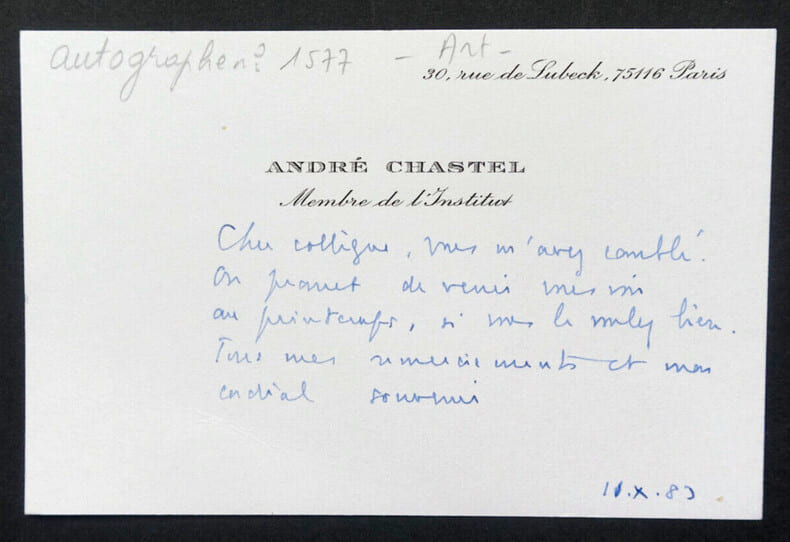 autographe n° 1577 - Art -
30, rue de Lubeck, 75116 Paris
ANDRÉ CHASTEL
Membre de l'Institut
Cher collègue, vous m'avez comblé.
On promet de venir vous voir
au printemps, si vous le voulez bien.
Tous mes remerciements et mon
cordial souvenir
11.X.83